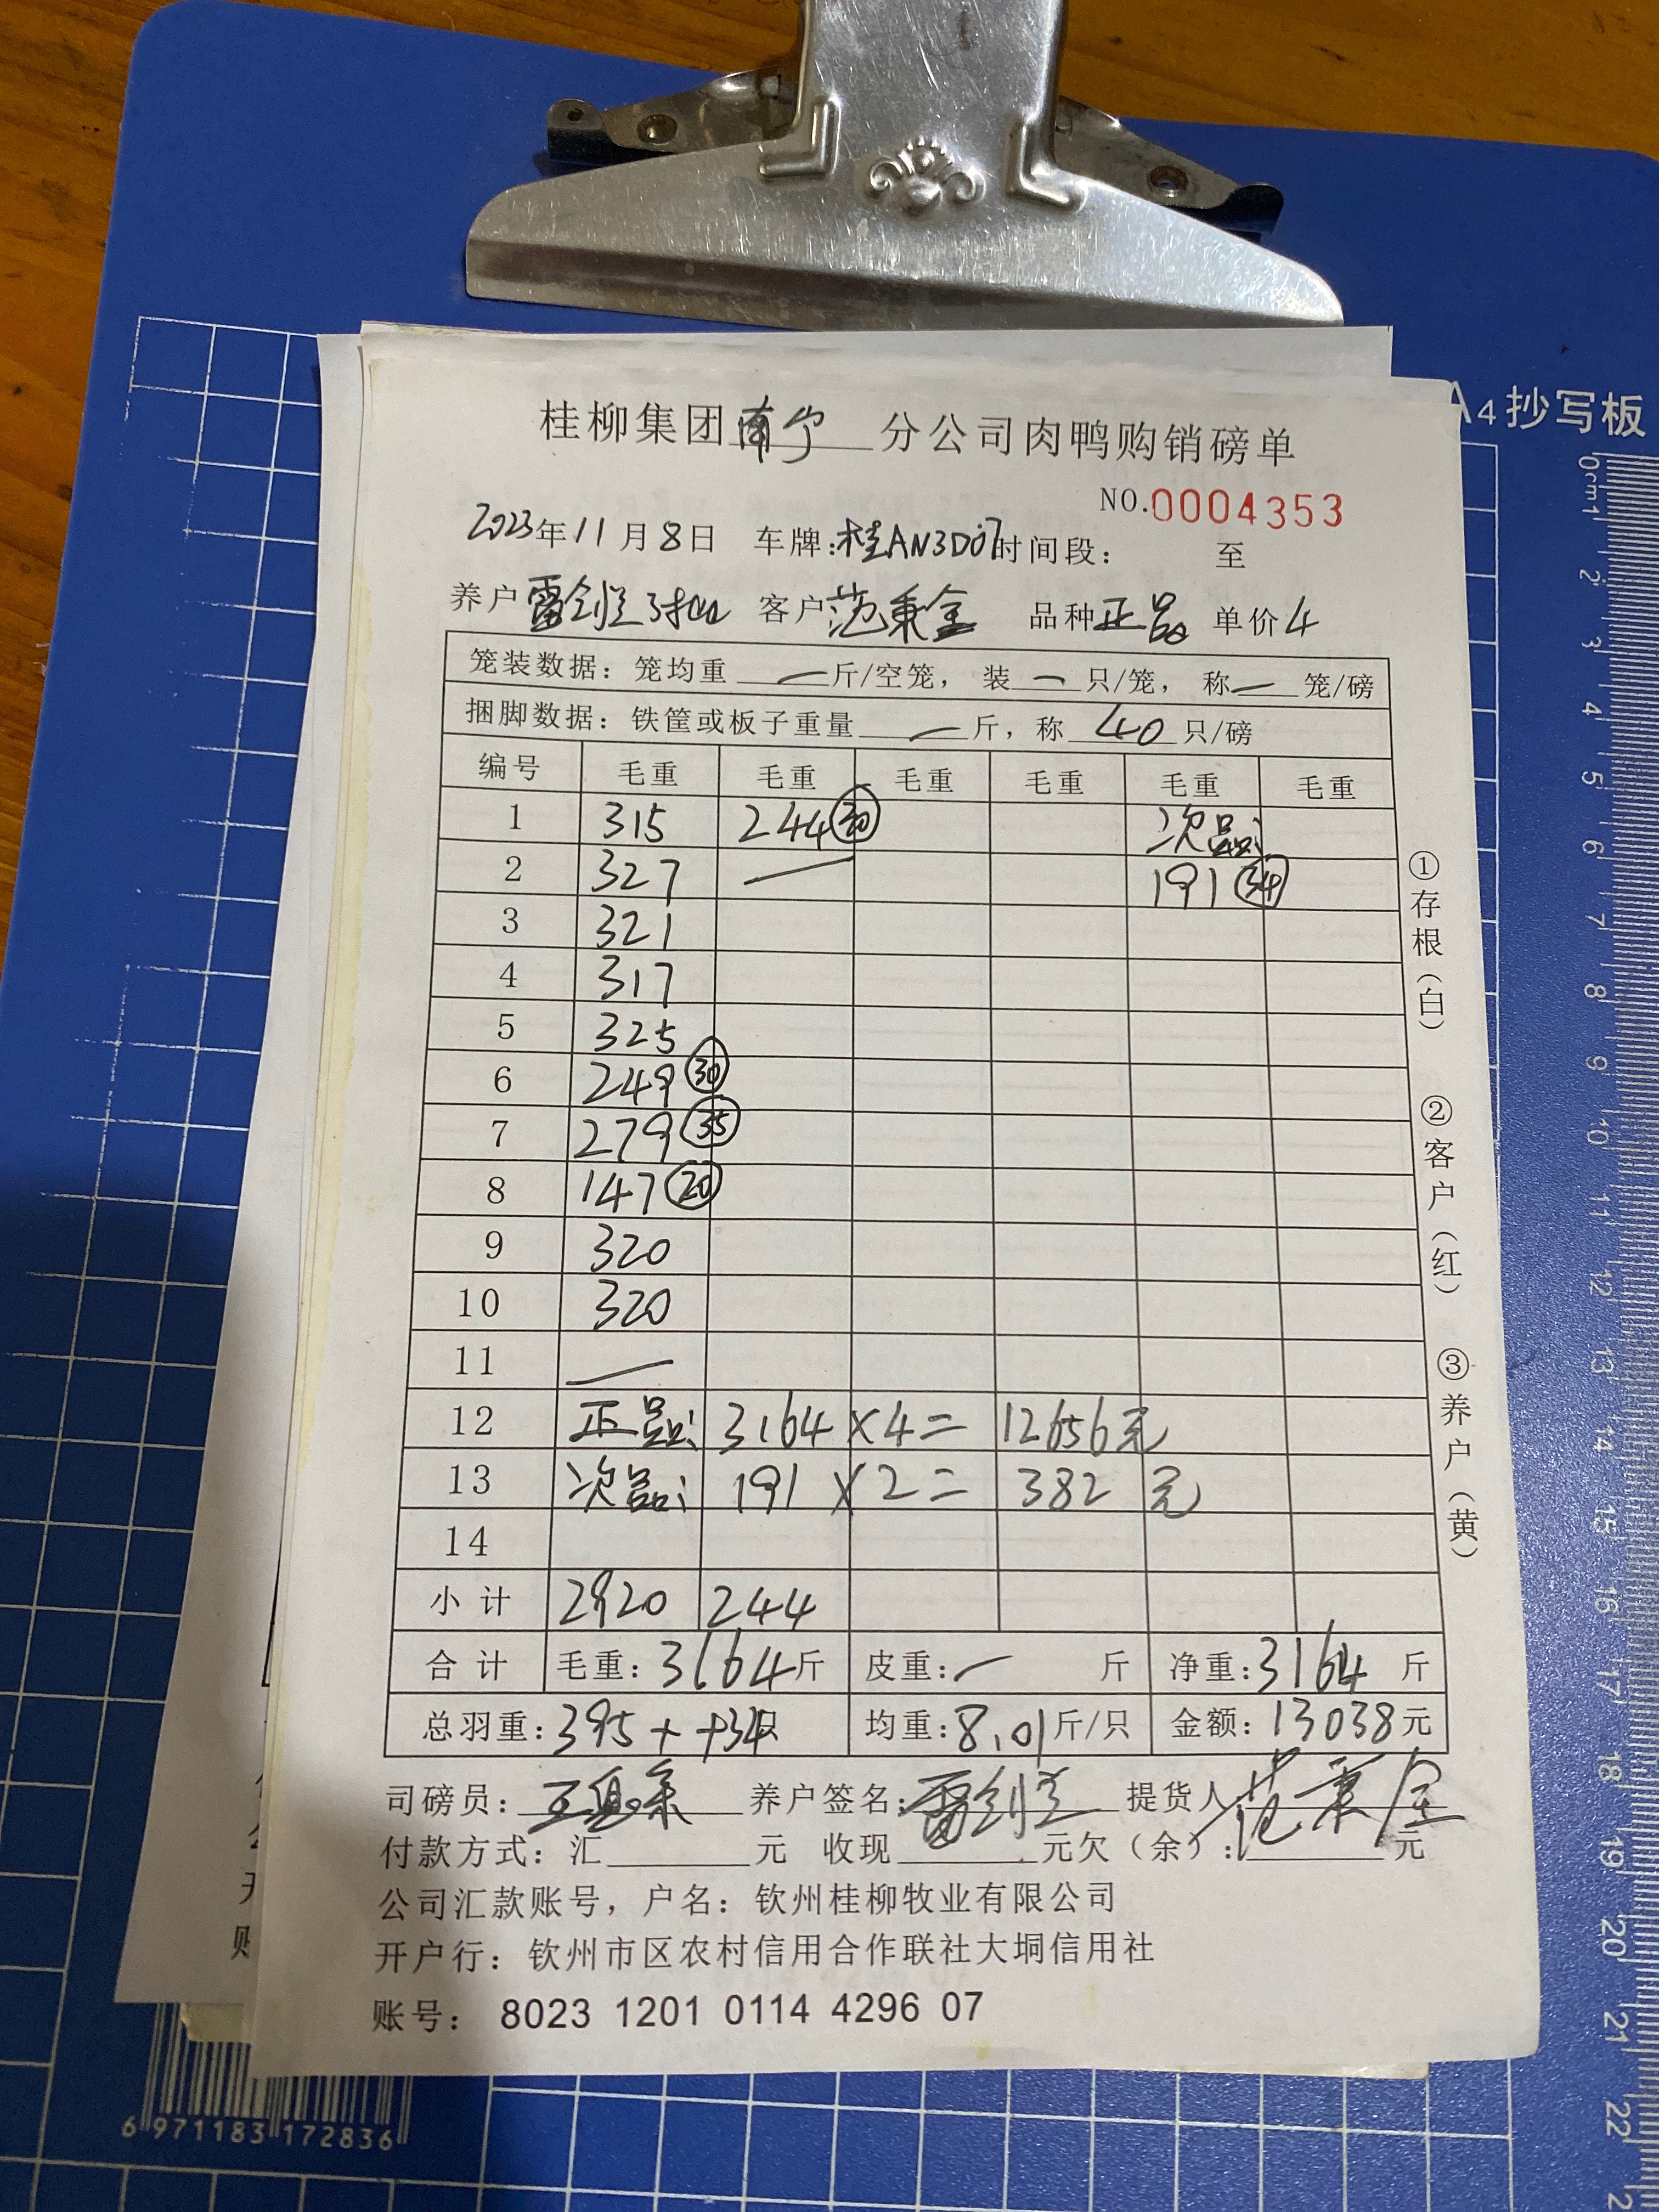 A4抄写板
桂柳集团南宁分公司肉鸭购销磅单
NO.0004353
2023年11月8日 车牌:桂AN3D07时间段: 至
养户 客户范秉金 品种正品 单价4
笼装数据: 笼均重 — 斤/空笼, 装 — 只/笼, 称 — 笼/磅
捆脚数据: 铁筐或板子重量 — 斤, 称 40 只/磅
编号 毛重 毛重 毛重 毛重 毛重 毛重
1 315 244 30 次品:
2 327 — 191 34
3 321
4 317
5 325
6 249 30
7 279 35
8 147 20
9 320
10 320
11 —
12 正品: 3164 × 4 = 12656元
13 次品: 191 × 2 = 382 元
14
小计 2920 244
合计 毛重: 3164斤 皮重: — 斤 净重: 3164 斤
总羽重: 395 + +34只 均重: 8.01斤/只 金额: 13038元
司磅员: 养户签名: 提货人 范秉金
付款方式: 汇 元 收现 元欠(余): 元
公司汇款账号, 户名: 钦州桂柳牧业有限公司
开户行: 钦州市区农村信用合作联社大垌信用社
账号: 8023 1201 0114 4296 07
①存根(白)
②客户(红)
③养户(黄)
0cm1 2 3 4 5 6 7 8 9 10 11 12 13 14 15 16 17 18 19 20 21 22
6 971183 172836